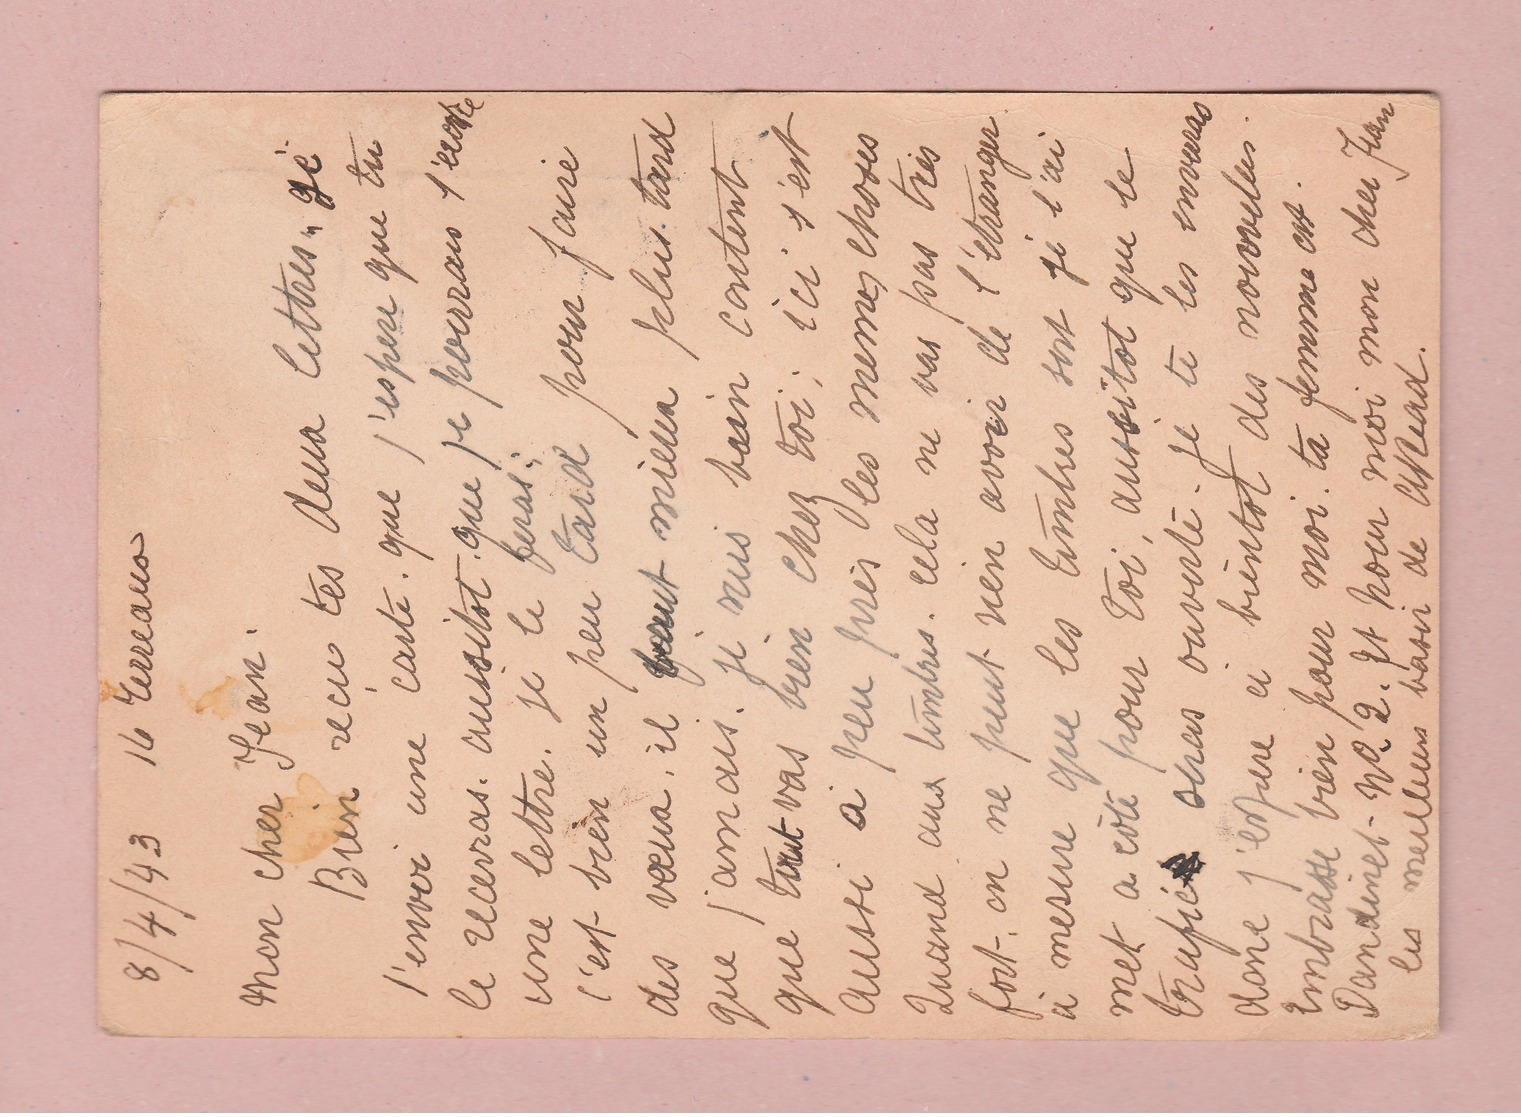 8/4/43 16 Terreaux
Mon cher Jean.
Bien reçus tes deux lettres, je
t'envoi une carte. que j'espere que tu
le recevras. aussitot. que je pourrais t'ecrire
une lettre. je le feras;
c'est bien un peu tard pour faire
des vœux. il vaut mieux plus. tard
que jamais. je suis bein content
que tout vas bien chez toi; ici s'est
aussi a peu près les memes choses
Quand aux timbres. cela ne vas pas très
fort. on ne peut rien avoir de l'etranger.
a mesure que les timbres sort je l'ai
met a côté pour toi, aussitot que le
trafic seras ouverte. je te les enveras
donc j'espere a bientot des nouvelles.
Embrasse bien pour moi. ta femme est.
Dandinet-No 2. Et pour moi mon cher Jean
les meilleurs baisi de